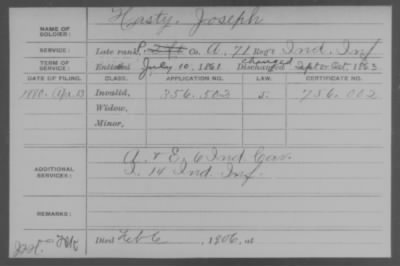 NAME OF SOLDIER: Hasty, Joseph
SERVICE: Late rank, Co. A, 71 Reg't Ind. Inf
TERM OF SERVICE: Enlisted July 10, 1861 Discharged Oct. 1863
DATE OF FILING. CLASS. APPLICATION NO. LAW. CERTIFICATE NO.
1880, Apr. 13 Invalid, 356.503 S. 736.002
Widow,
Minor,
ADDITIONAL SERVICES: A. & E. 6 Ind. Cav.
I. 14 Ind. Inf.
REMARKS:
Died Feb 6, 1906, at